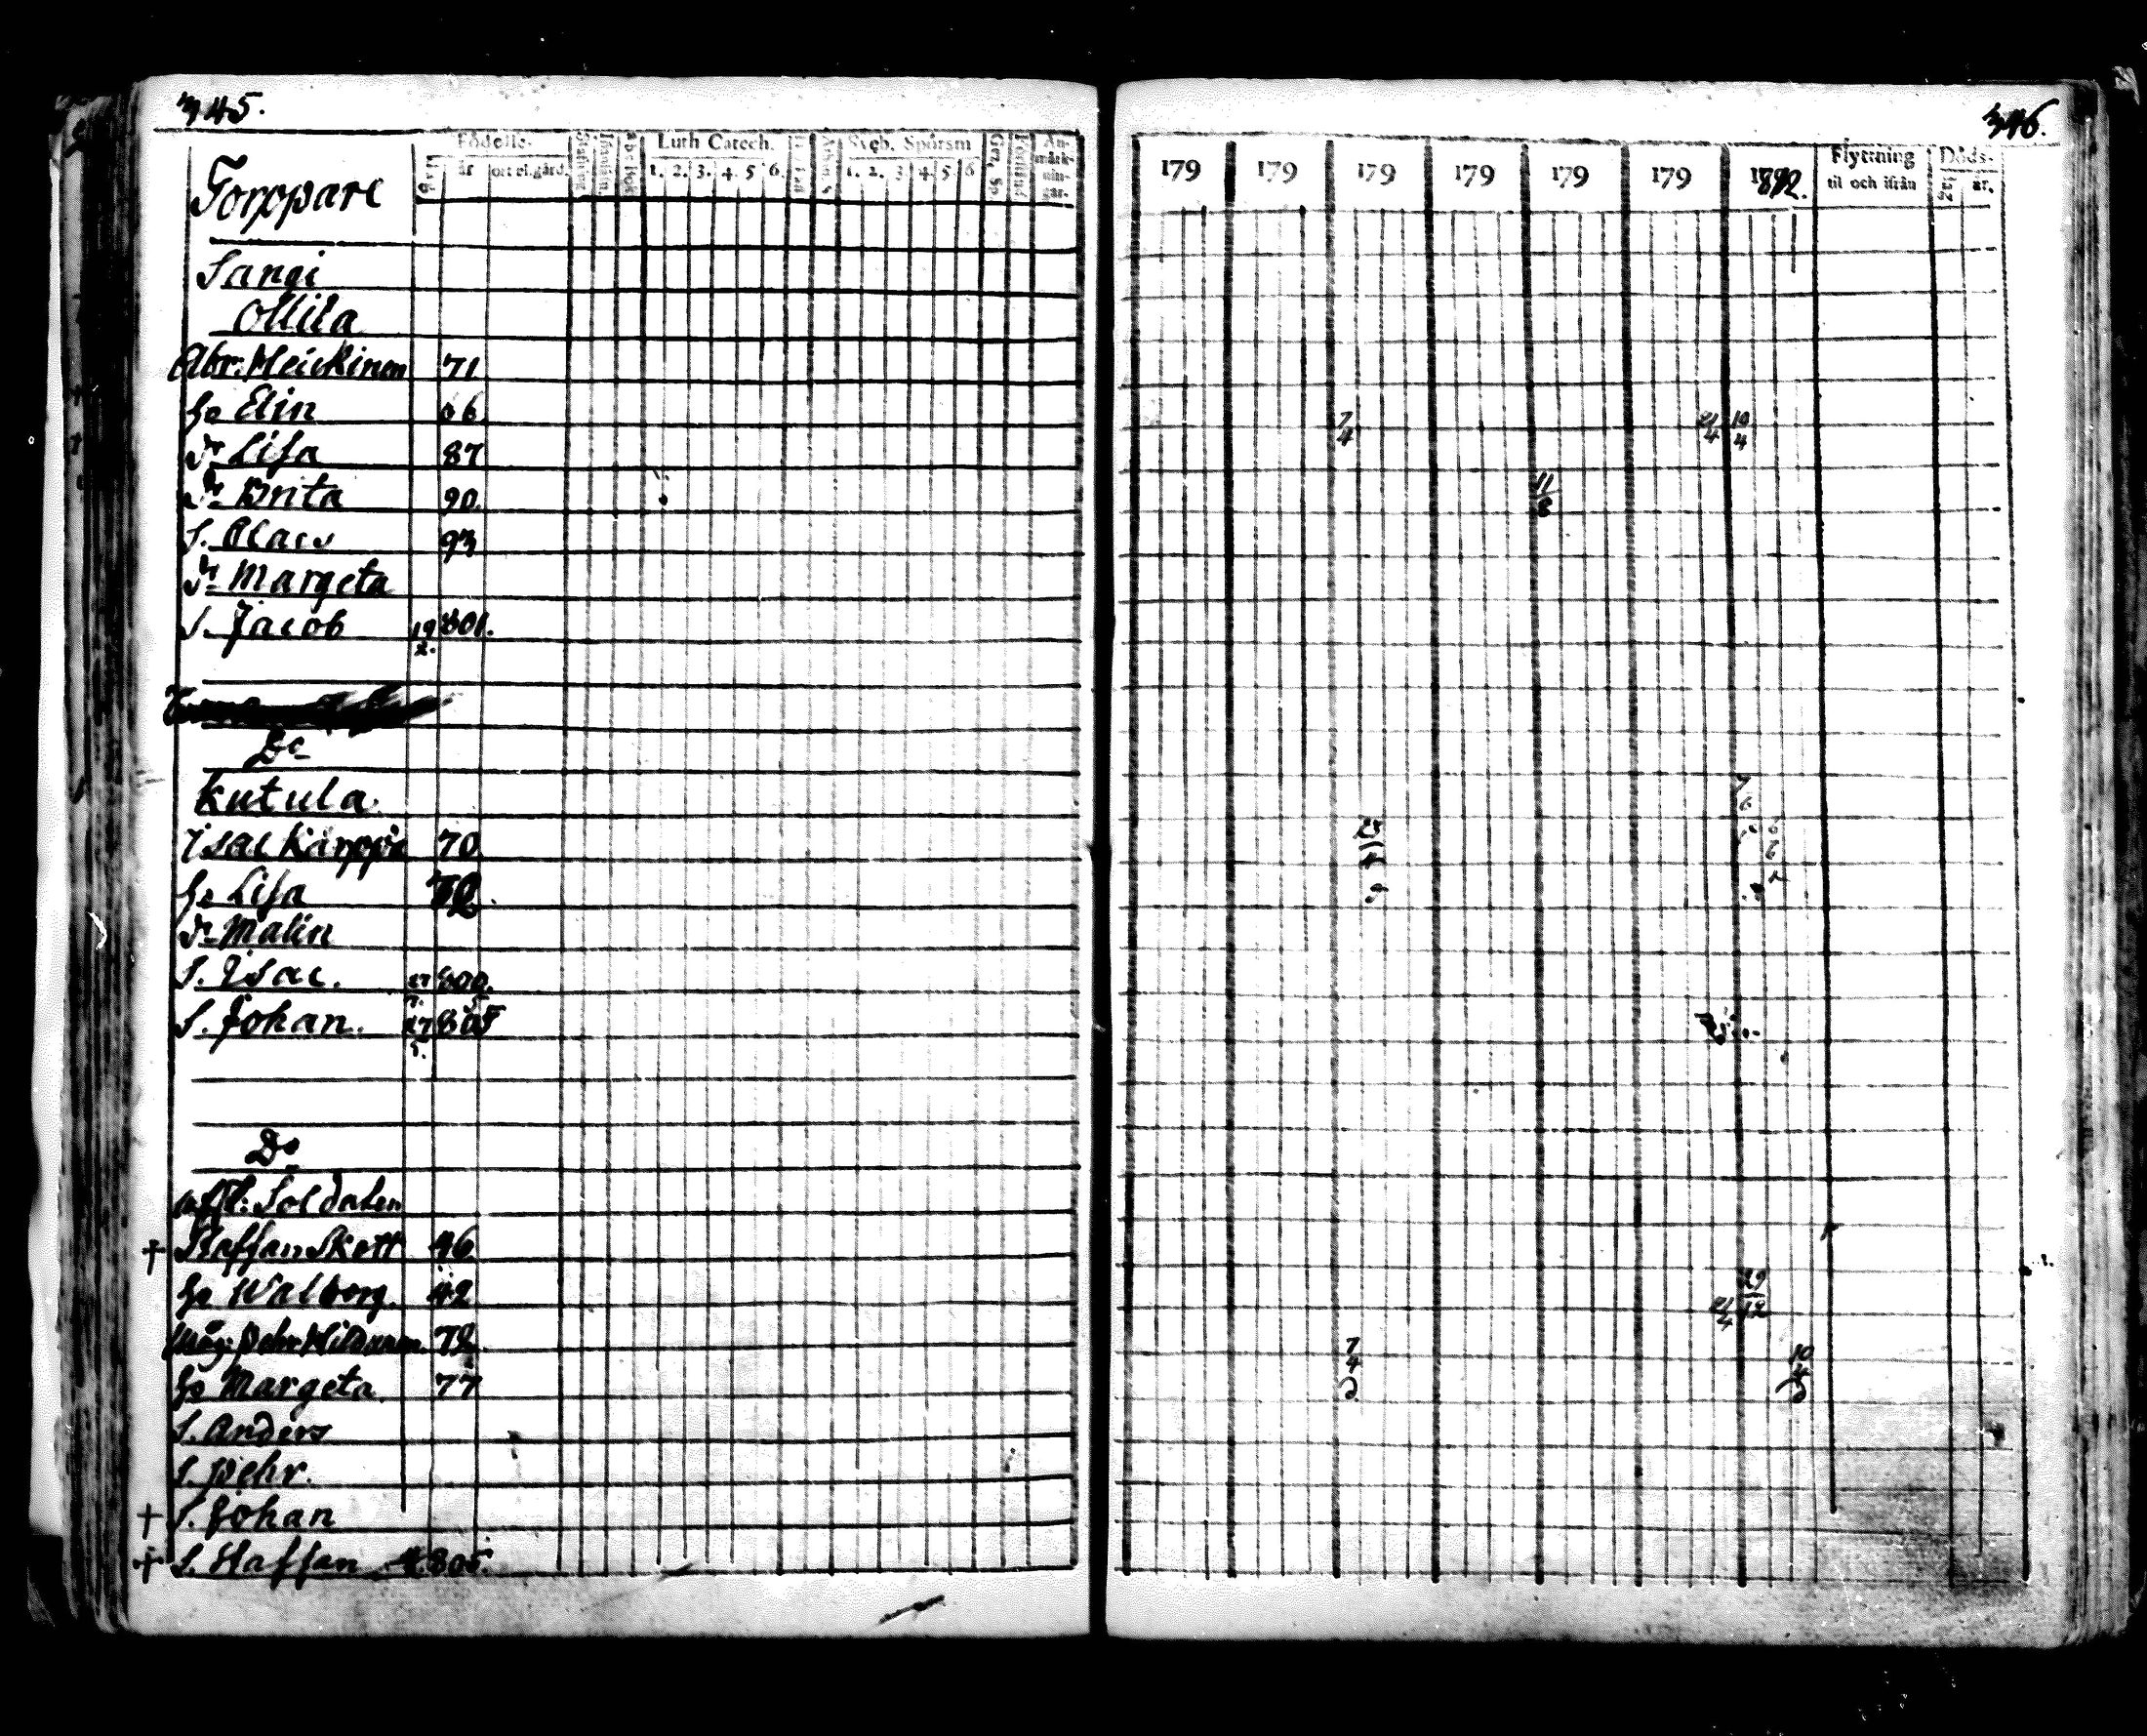 345.
Födelse-
år ort el. gård.
Luth Catech.
Sveb. Spörsm
1. 2. 3. 4. 5 6.
1. 2. 3. 4. 5. 6
An-
märk-
nin-
gar.
Torppare
Sangi
Ollila
Abr. Heickinen 71
hu Elin 66
dr Lisa 87
dr Brita 90.
S. Claes 93
dr Margeta
S. Jacob 19/2. 801.
Do
Kutula
Isac Karppi 70
hu Lisa
dr Malin
S. Isac. 27 800.
S. Johan. 27/5. 805
Do
afsk: Soldaten
† Staffan Skott 46
hu Walborg. 42
Måg: Pehr 72
hu Margeta 77
S. Anders
S. Pehr.
† S. Johan
† S. Staffan 805.
346.
179 179 179 179 179 179 1812.
Flyttning
til och ifrån
Döds-
år.
7/4 21/4 10/4
11/8
29/12
21/4
7/4 10/4